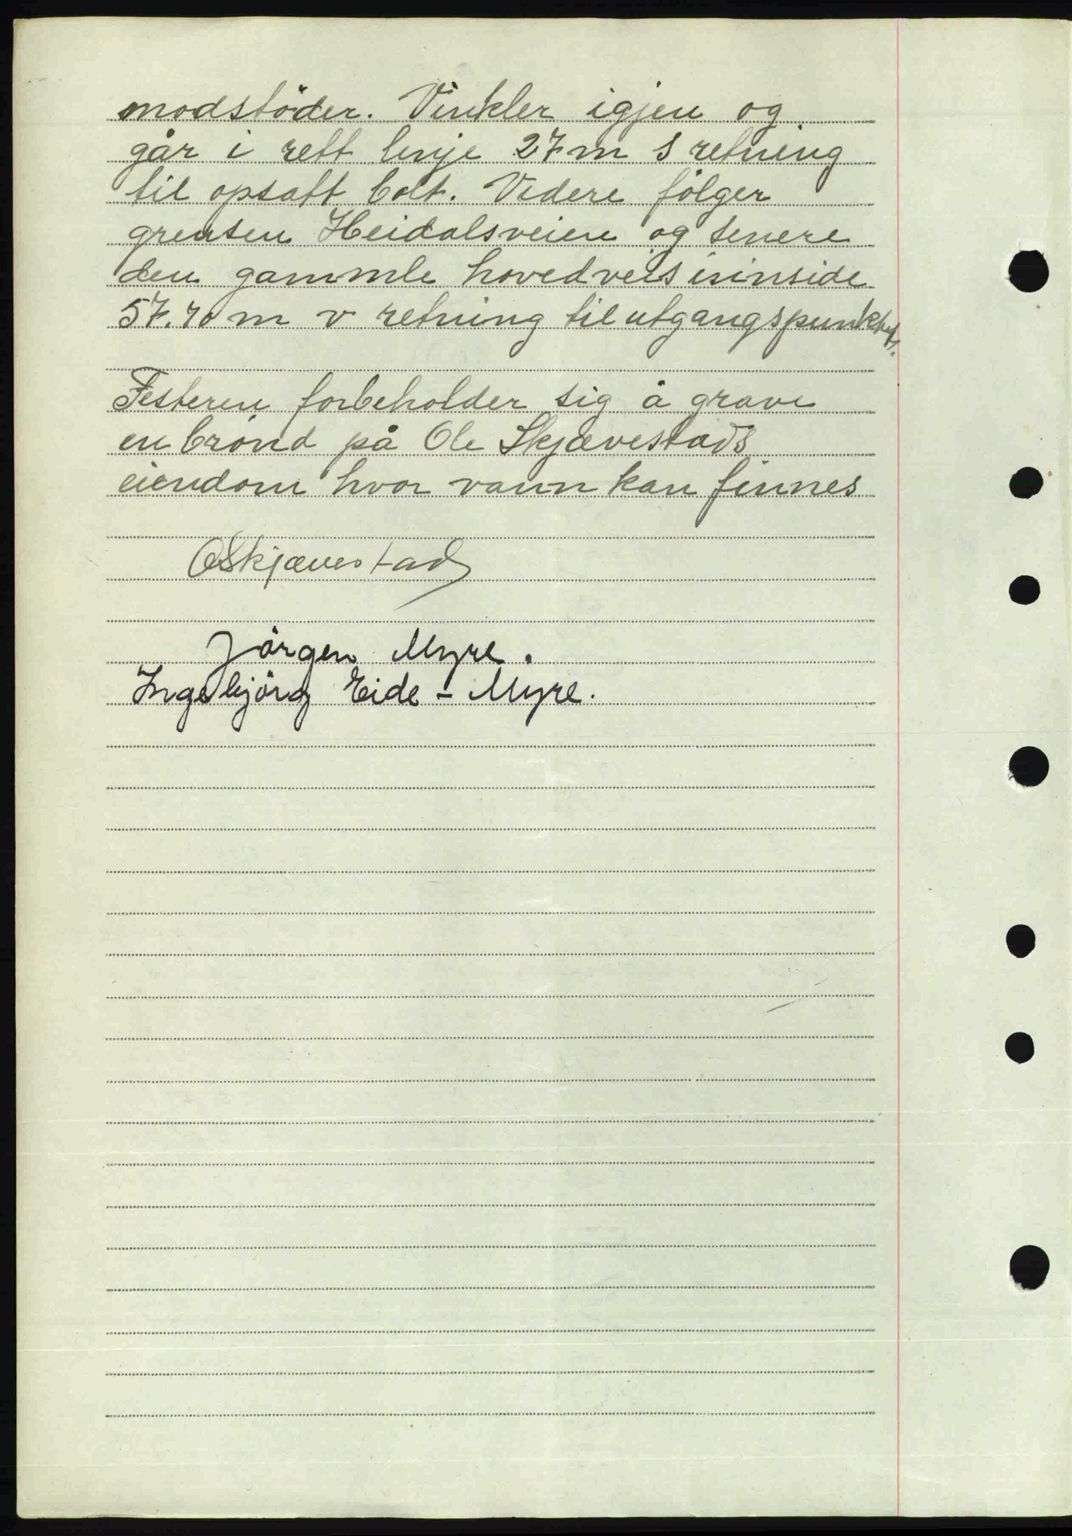 modstöder. Vinkler igjen og
går i rett linje 27 m S retning
til opsatt bolt. Videre fölger
grensen Heidalsveien og senere
den gammle hovedveis innside
57.70 m v retning til utgangspunktet.
Festeren forbeholder sig å grave
en brönd på Ole Skjævestads
eiendom hvor vann kan finnes
OSkjævestad
Jörgen Myre.
Ingebjörg Eide - Myre.